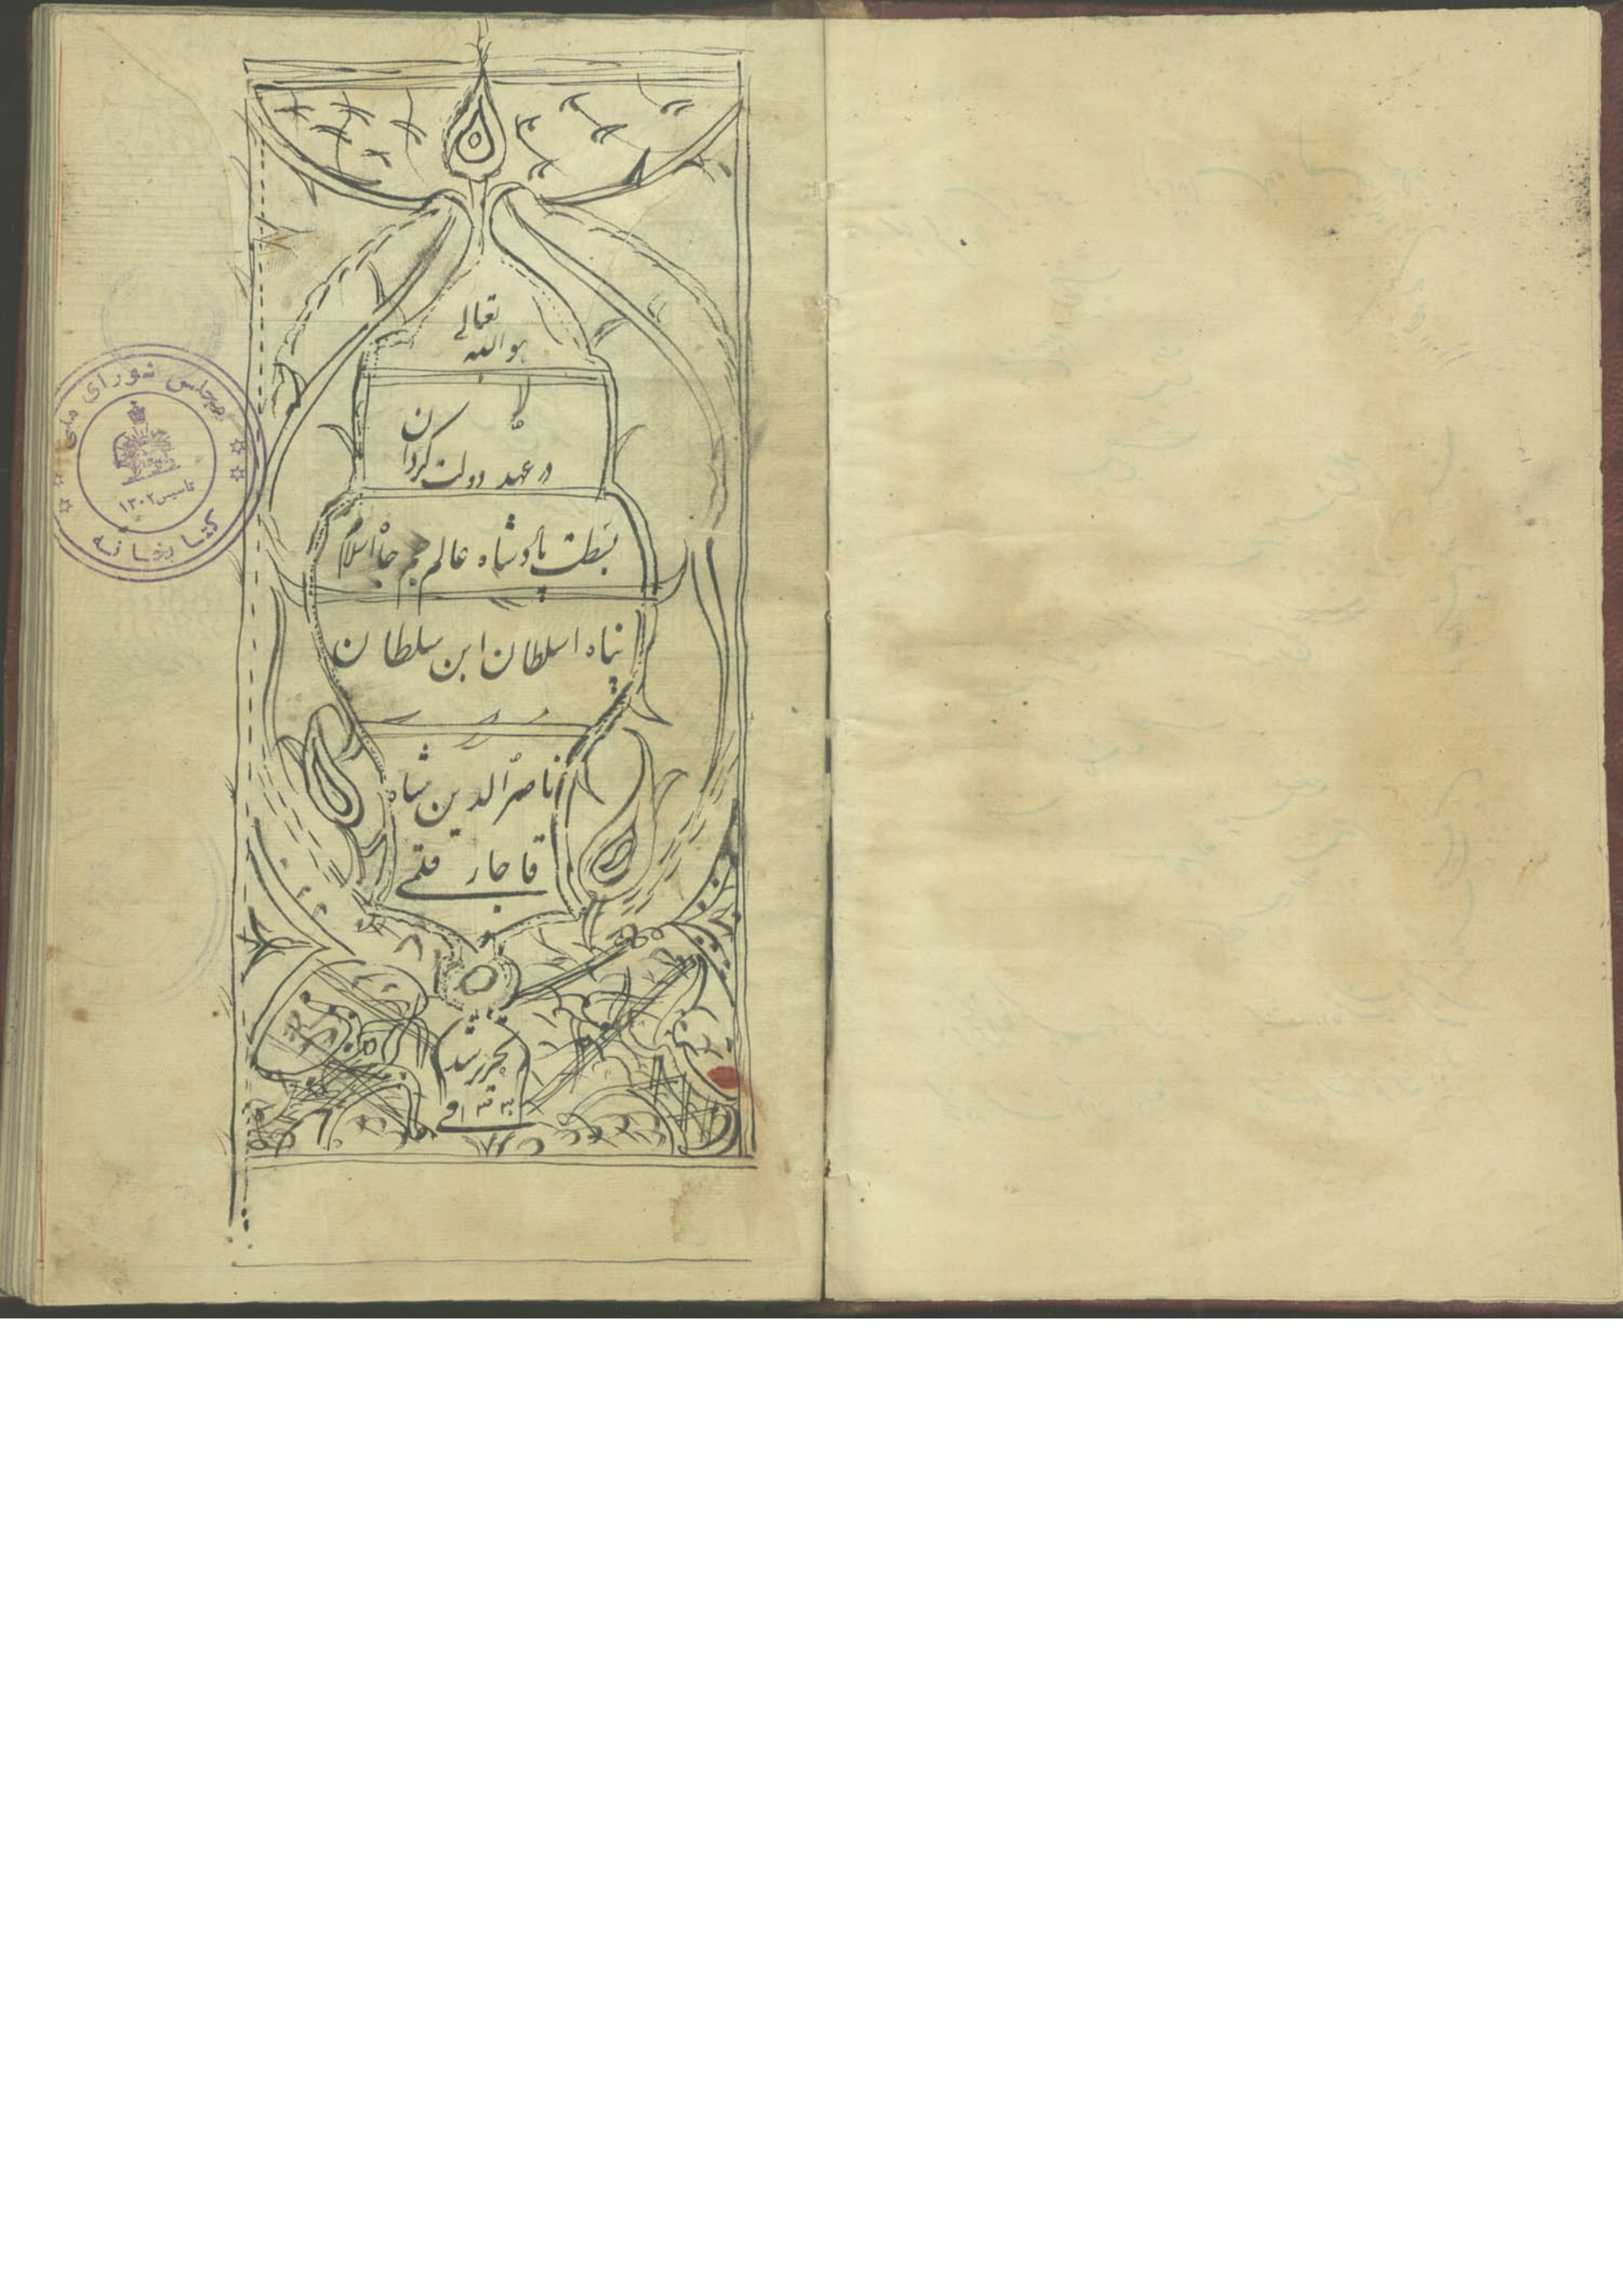 هو الله تعالی
در عهد دولت گردان
بسطت پادشاه عالم جم جاه اسلام
پناه اسلطان ابن سلطان
ناصرالدین شاه
قاجار قلمی
تحریر شد
مجلس شورای ملی
تاسیس ۱۳۰۲
کتابخانه